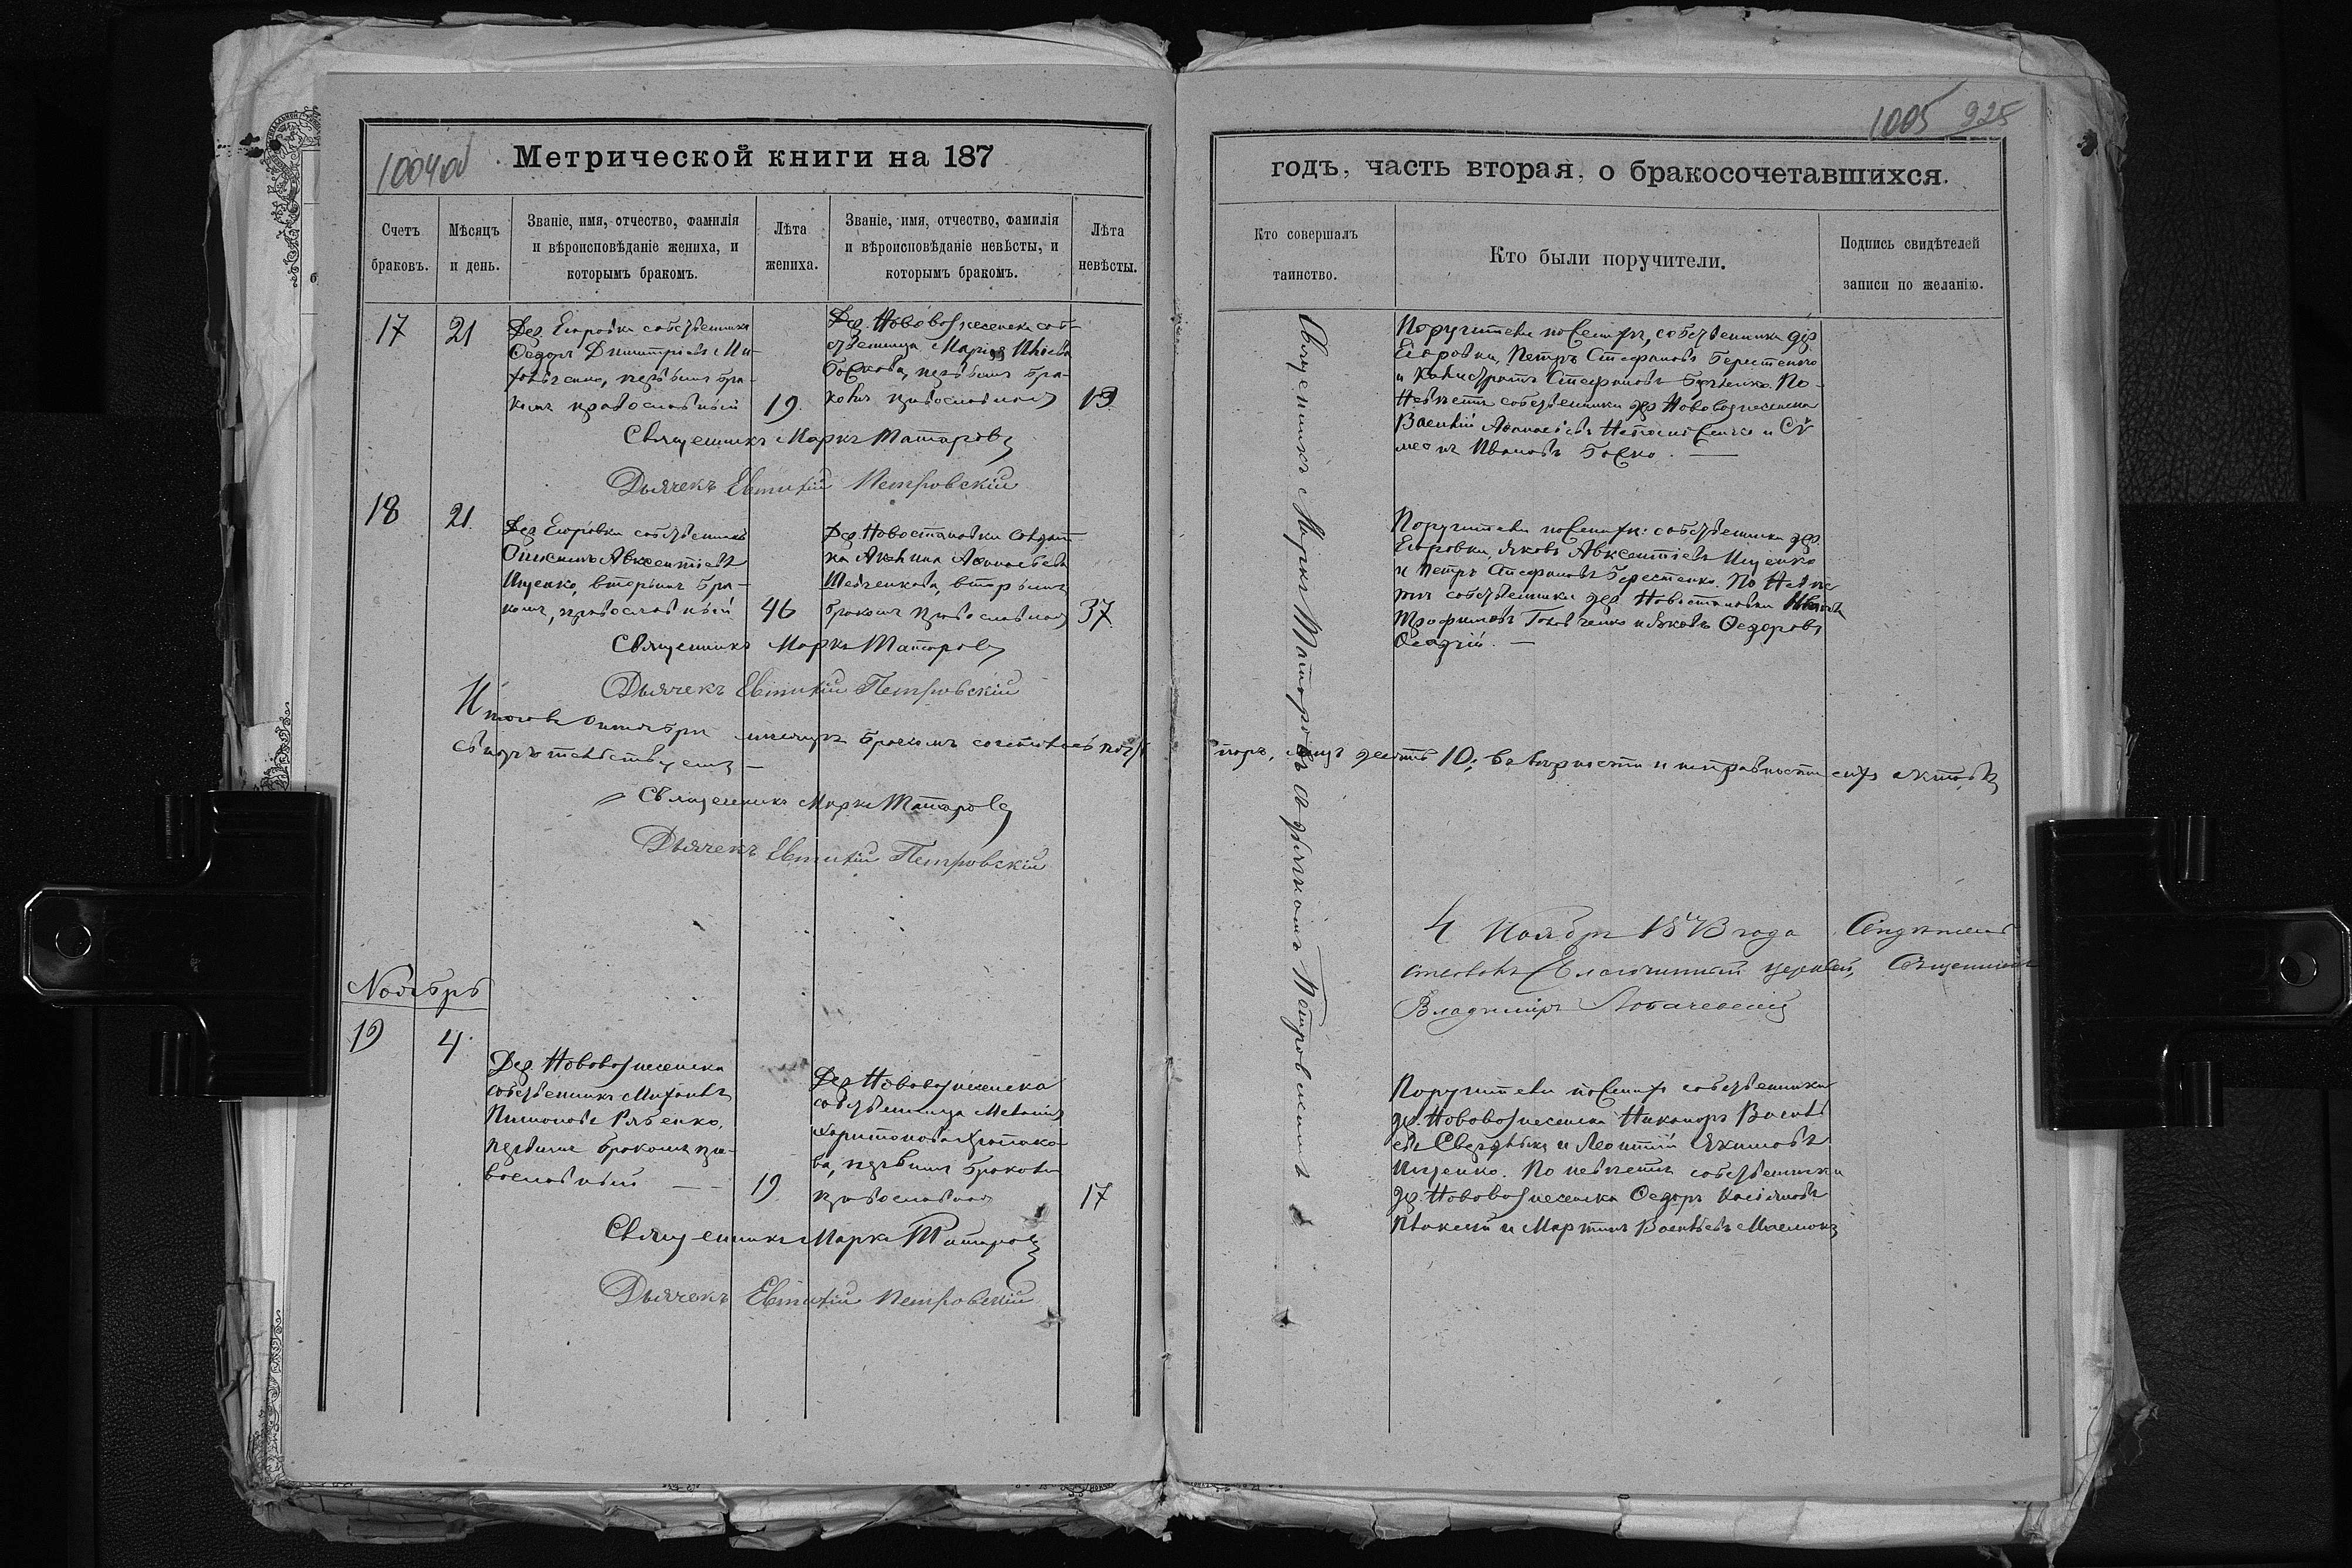 1004об
Метрической книги на 187
Счетъ браковъ.
Мѣсяцъ и день.
Званіе, имя, отчество, фамилія
и вѣроисповѣданіе жениха, и
которымъ бракомъ.
Лѣта жениха.
Званіе, имя, отчество, фамилія
и вѣроисповѣданіе невѣсты, и
которымъ бракомъ.
Лѣта невѣсты.
17
21
Дер. Егоровки собственникъ
Ѳедоръ Димитріевъ
первымъ бра-
комъ православный
19.
Дер. Нововознесенска соб-
ственница Марія
первымъ бра-
комъ православная
Священникъ Маркъ Татаровъ
Дьячекъ Евтихій Петровскій
18
21.
Дер. Егоровки собственникъ
Онисимъ Авксентіевъ
Ищенко, вторымъ бра-
комъ, православный
46
Дер. Новостановки солдат-
ка Акилина Аѳанасьева
Шевченкова, вторымъ
бракомъ православная
37.
Священникъ Маркъ Татаровъ
Дьячекъ Евтихій Петровскій
Итого въ Октябрѣ мѣсяцѣ бракомъ сочетались пять
свидѣтельствуемъ —
Священникъ Маркъ Татаровъ
Дьячекъ Евтихій Петровскій
Ноябрь
19
4.
Дер. Нововознесенска
собственникъ
Рябенко,
первымъ бракомъ пра-
вославный —
19
Дер. Нововознесенска
собственница Меланія
Харитонова
первымъ бракомъ
православная
17
Священникъ Маркъ Татаровъ
Дьячекъ Евтихій Петровскій
1005 925
годъ, часть вторая, о бракосочетавшихся.
Кто совершалъ таинство.
Кто были поручители.
Подпись свидѣтелей
записи по желанію.
Священникъ Маркъ Татаровъ съ дьячкомъ Петровскимъ
Поручители по женихѣ, собственники дер.
Егоровки, Петръ Стефановъ Берестенко
и Калистратъ Стефановъ По
невѣстѣ собственники дер. Нововознесенска
Василій Аѳанасіевъ и Сѵ-
меонъ Ивановъ Божко. —
Поручители по женихѣ: собственники дер.
Егоровки, Яковъ Авксентіевъ Ищенко
и Петръ Стефановъ Берестенко. По невѣс-
тѣ собственники дер. Новостановки
Трофимовъ Головченко и Яковъ Ѳедоровъ
Осадчій. —
паръ, лицъ десять 10; въ вѣрности и исправности сихъ актовъ
4 Ноября 1873 года
Благочинный церквей, Священникъ
Владиміръ Лобачевскій
Поручители по женихѣ собственники
дер. Нововознесенска Никаноръ Василь-
евъ и Леонтій Якимовъ
Ищенко. По невѣстѣ собственники
дер. Нововознесенска Ѳедоръ
и Мартинъ Васильевъ